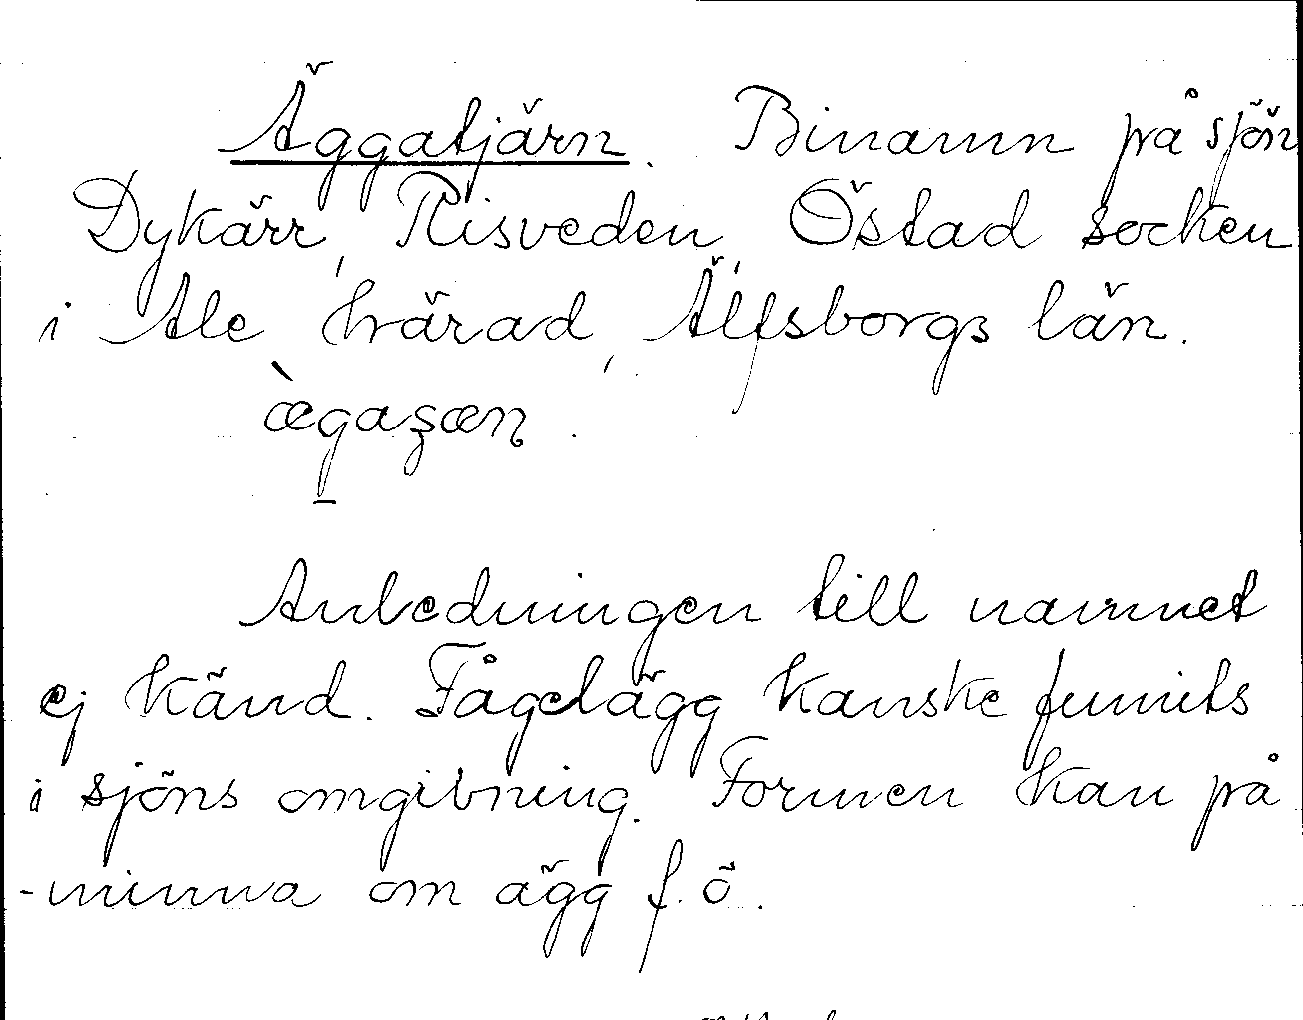 Äggatjärn. Binamn på sjön
Dykärr, Risveden, Östad socken
i Ale härad, Älfsborgs län.
ægaʒæn.
Anledningen till namnet
ej känd. Fågelägg kanske funnits
i sjöns omgivning. Formen kan på
-minna om ägg f. ö.